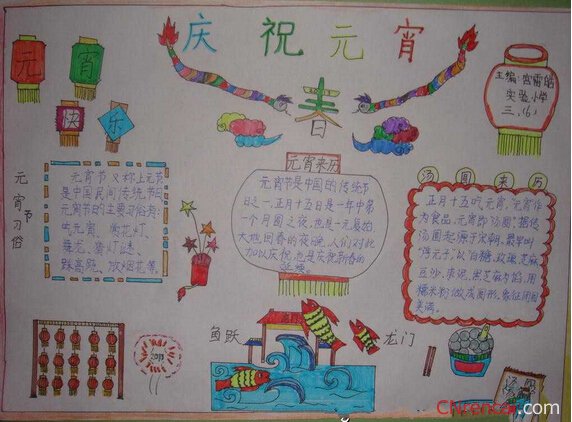 庆祝元宵
春
元宵
快乐
主编:
实验小学
三、(6)
元宵来历
汤圆来历
元宵节习俗
元宵节又称上元节
是中国民间传统节日
元宵节的主要习俗有:
吃元宵、赏花灯、
舞龙、猜灯谜、
踩高跷、放烟花等。
元宵节是中国的传统节
日之一,正月十五日是一年中第
一个月圆之夜,也是一元复始
大地回春的夜晚,人们对此
加以庆祝,也是庆祝新春的
延续。
正月十五吃元宵,“元宵”作
为食品,元宵即“汤圆”,据传
汤圆起源于宋朝,最早叫
“浮元子”,以白糖、玫瑰、芝麻
豆沙、枣泥、黑芝麻为馅,用
糯米粉做成圆形,象征团圆
美满。
鱼跃
龙门
Chirenc.com